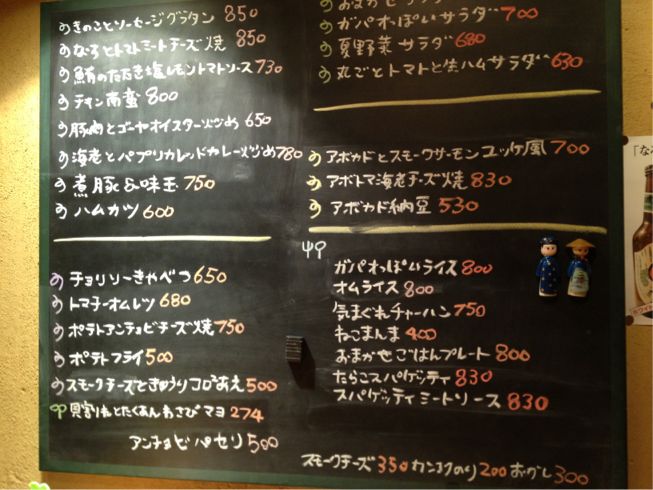 きのことソーセージグラタン 850
なすとトマトミートチーズ焼 850
鮪のたたき塩レモントマトソース 730
チキン南蛮 800
豚肉とゴーヤオイスター炒め 650
海老とパプリカレッドカレー炒め 780
煮豚&味玉 750
ハムカツ 600
チョリソーきゃべつ 650
トマチーオムレツ 680
ポテトアンチョビチーズ焼 750
ポテトフライ 500
スモークチーズときゅうりコロコロあえ 500
とたくあんわさびマヨ 274
アンチョビパセリ 500
ガパオっぽいサラダ 700
夏野菜サラダ 680
丸ごとトマトと生ハムサラダ 630
アボカドとスモークサーモンユッケ風 700
アボトマ海老チーズ焼 830
アボカド納豆 530
ガパオっぽいライス 800
オムライス 800
気まぐれチャーハン 750
ねこまんま 400
おまかせごはんプレート 800
たらこスパゲッティ 830
スパゲッティミートソース 830
スモークチーズ 350 カンヨクのり 200 おかし 300
「な